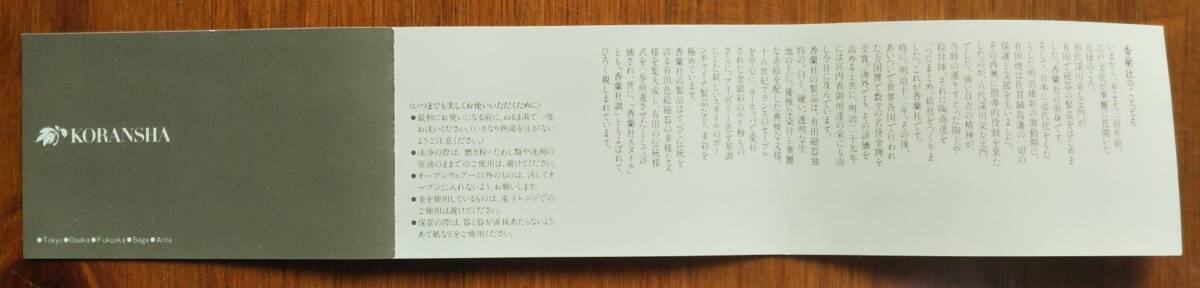 KORANSHA
●Tokyo ●Osaka ●Fukuoka ●Saga ●Arita
〈いつまでも美しくお使いいただくために〉
●最初にお使いになる前に、ぬるま湯で一度
お洗いください。(いきなり熱湯を注がない
ようご注意ください。)
●洗浄の際は、磨き粉・たわし類や洗剤の
原液のままでのご使用は、避けてください。
●オーブンウェアー以外のものは、決してオ
ーブンに入れないよう、お願いします。
●金を使用しているものは、電子レンジでの
ご使用は避けてください。
●保管の際は、器と器が直接あたらないよう、
あて紙などをご使用ください。
香蘭社のことども
いまから、およそ二百年前、
江戸文化が華麗に花開いた
元禄のころ、
初代深川栄左ヱ門が
有田で磁器の製造をはじめま
した。香蘭社の前身です。
そして、日本に近代化をもた
らした明治維新の激動期に、
有田焼は佐賀鍋島藩の一切の
保護と支援を失いました。
その再起に指導的役割を果た
したのが、八代深川栄左ヱ門
でした。強い自立の精神が、
当時の選りすぐった陶工や
絵付師、それに陶商達を
一つにまとめ、結社をつくりま
した。これが香蘭社です。
時に、明治十二年。その後、
あいついで世界各国で行われ
た万国博で数々の名誉金牌を
受賞。海外でも、その評価を
高めると共に、明治二十九年
には宮内省御用達の栄にも浴
し今日に及んでいます。
香蘭社の製品は、有田磁器独
特の、白く、硬い、透明な生
地の上に、優雅な染付と華麗
な赤絵を配した典雅な文様、
十八世紀フランスのセーブル
を中心に、ヨーロッパで愛好
された金銀彩のルリ釉もの、
さらに、アイボリー色を基調
にした新しいスタイルのボー
ンチャイナ製品など、多彩を
極めています。
香蘭社の製品はすべて、伝統を
誇る有田色絵磁器の多様な文
様を集大成し、有田の伝統様
式を一歩前進させたとして評
価され、世に、“香蘭社スタイル”
とも、“香蘭社調”ともよばれて、
ひろく親しまれています。